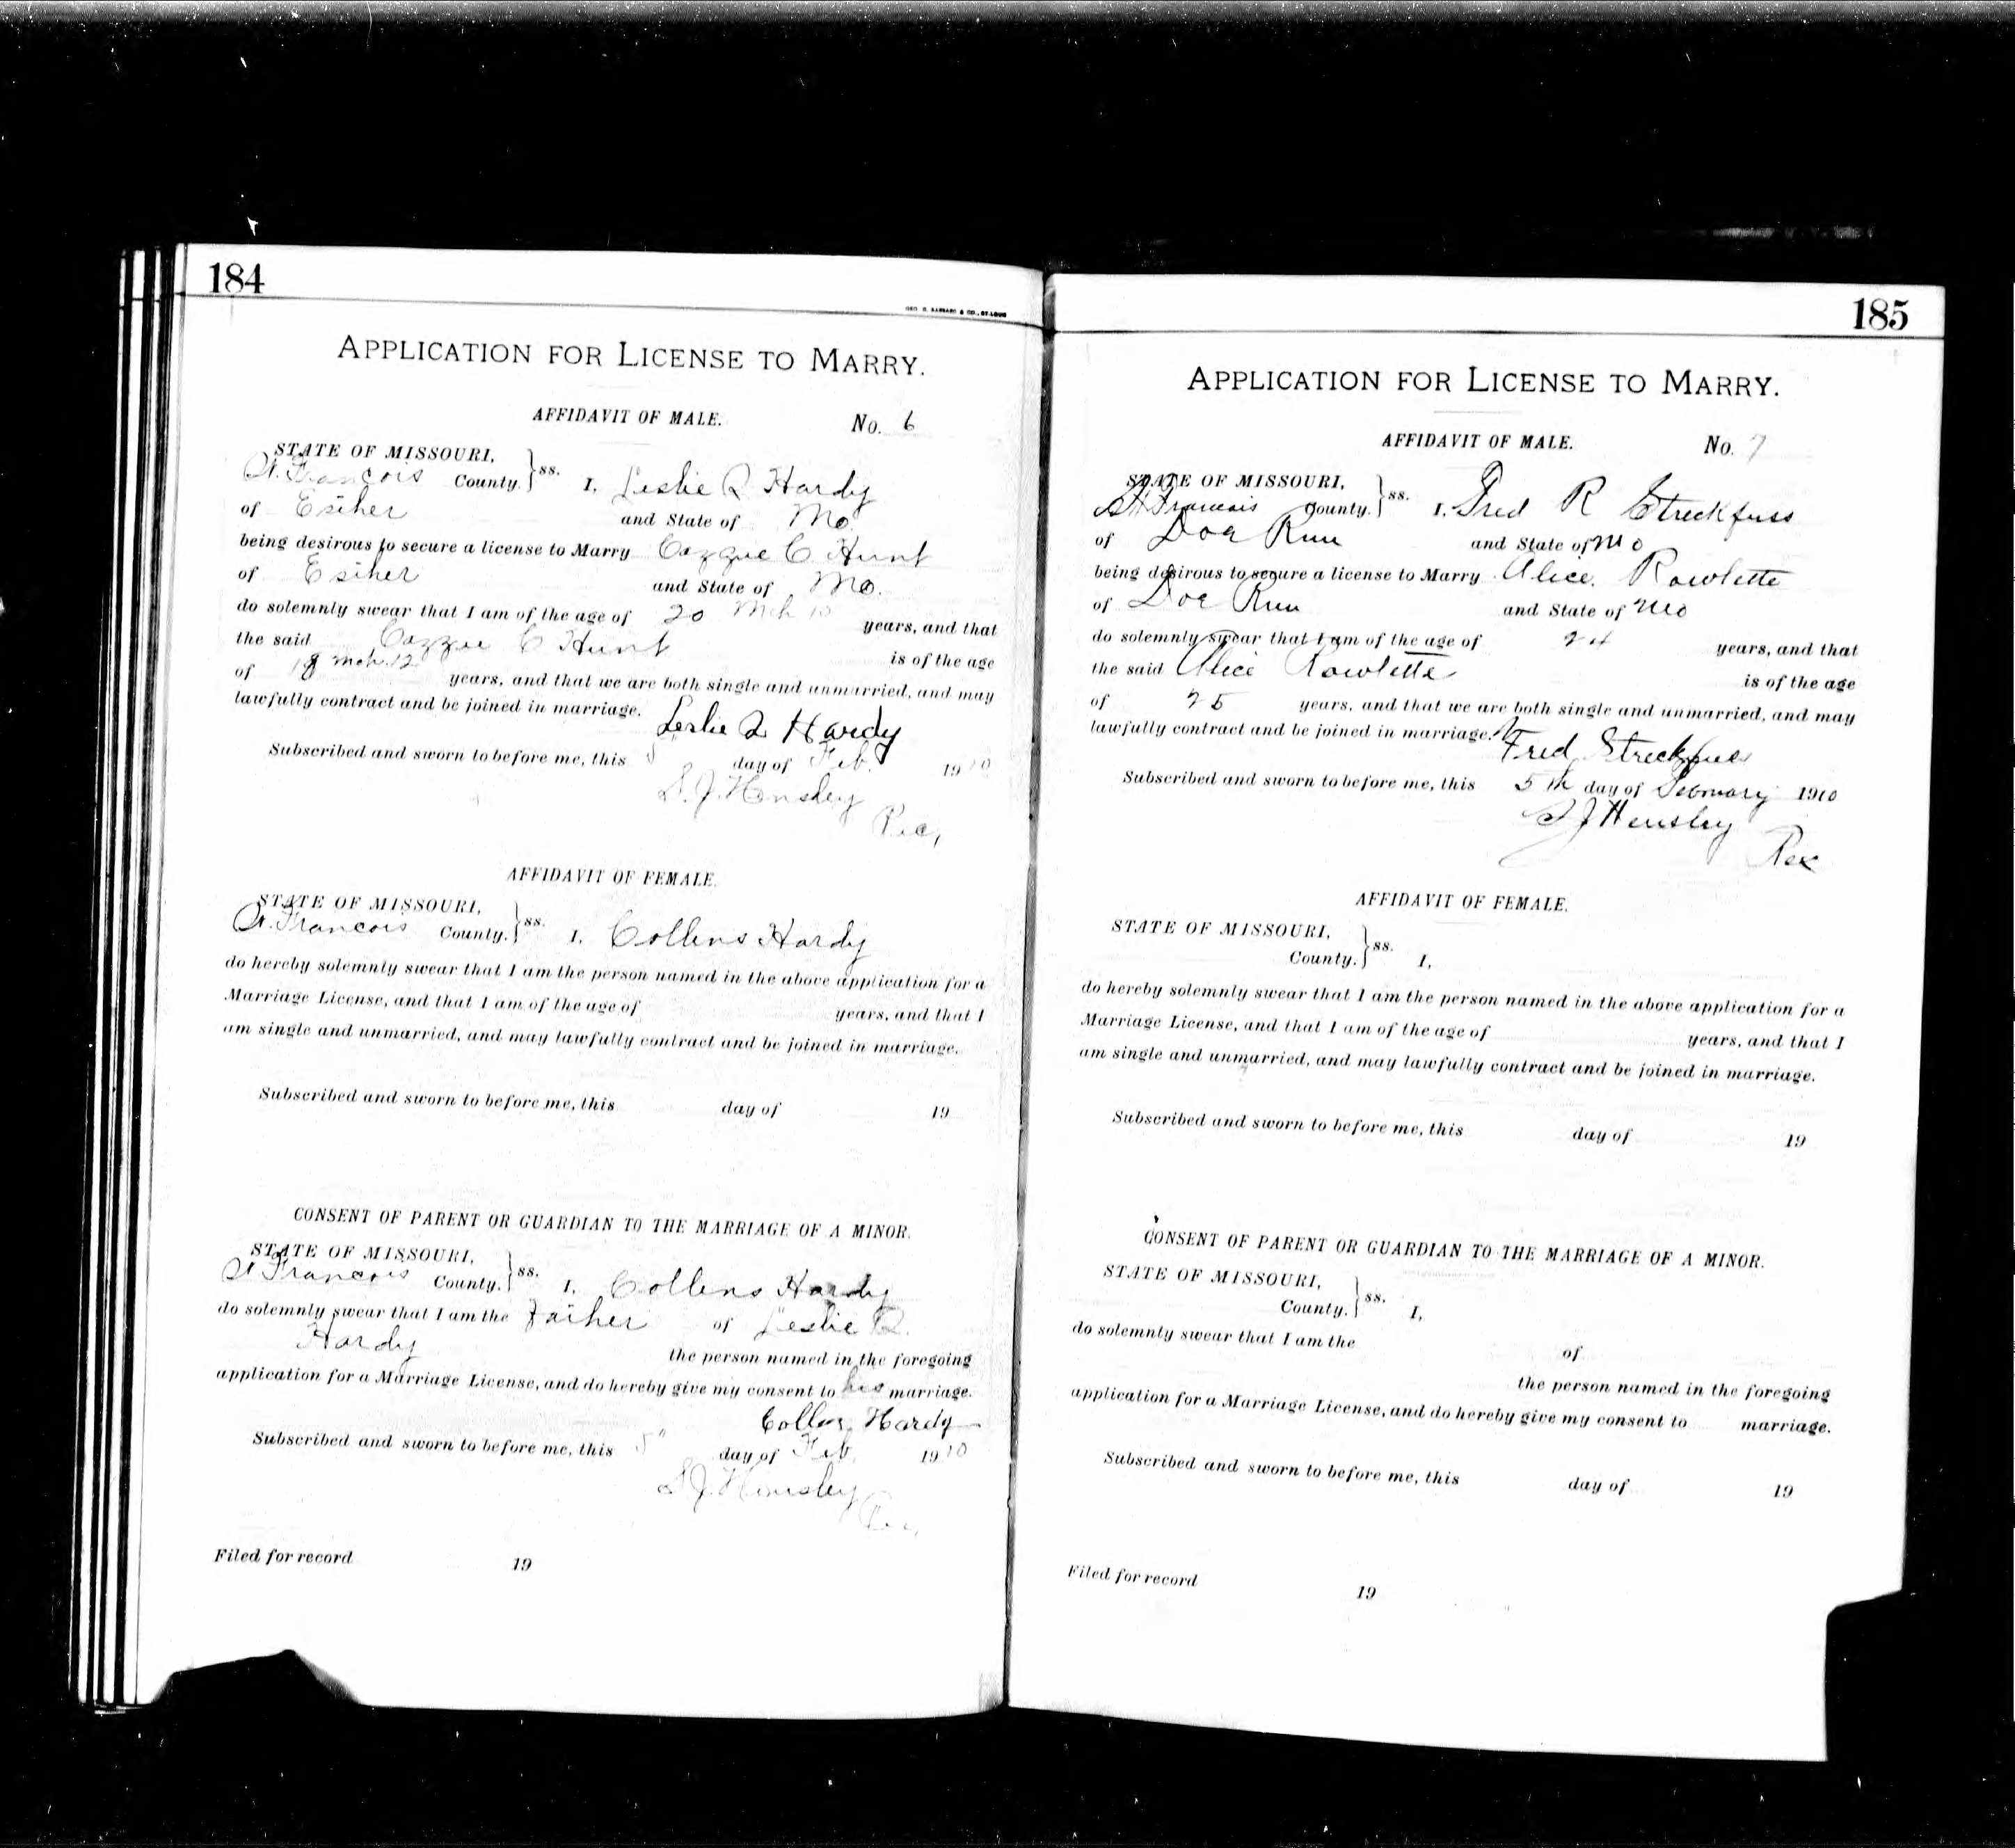 184
GEO. D. BARNARD & CO., ST. LOUIS
APPLICATION FOR LICENSE TO MARRY.
AFFIDAVIT OF MALE. No. 6
STATE OF MISSOURI,
St. Francois County. } ss. I, Leslie Q Hardy
of Esther and State of Mo.
being desirous to secure a license to Marry Cozzie C Hunt
of Esther and State of Mo.
do solemnly swear that I am of the age of 20 Mch 10 years, and that
the said Cozzie C Hunt is of the age
of 18 Mch. 12 years, and that we are both single and unmarried, and may
lawfully contract and be joined in marriage.
Leslie Q Hardy
Subscribed and sworn to before me, this 5" day of Feb. 1910
S. J. Hensley
Rec,
AFFIDAVIT OF FEMALE.
STATE OF MISSOURI,
St. Francois County. } ss. I, Collens Hardy
do hereby solemnly swear that I am the person named in the above application for a
Marriage License, and that I am of the age of years, and that I
am single and unmarried, and may lawfully contract and be joined in marriage.
Subscribed and sworn to before me, this day of 19
CONSENT OF PARENT OR GUARDIAN TO THE MARRIAGE OF A MINOR.
STATE OF MISSOURI,
St Francois County. } ss. I, Collens Hardy
do solemnly swear that I am the Father of Leslie Q.
Hardy the person named in the foregoing
application for a Marriage License, and do hereby give my consent to his marriage.
Collens Hardy
Subscribed and sworn to before me, this 5" day of Feb. 1910
S. J. Hensley
Rec,
Filed for record 19
185
APPLICATION FOR LICENSE TO MARRY.
AFFIDAVIT OF MALE. No. 7
STATE OF MISSOURI,
St Francois County. } ss. I, Fred R Streckfuss
of Doe Run and State of Mo
being desirous to secure a license to Marry Alice Rowlette
of Doe Run and State of Mo
do solemnly swear that I am of the age of 24 years, and that
the said Alice Rowlette is of the age
of 25 years, and that we are both single and unmarried, and may
lawfully contract and be joined in marriage.
Fred Streckfuss
Subscribed and sworn to before me, this 5th day of February 1910
S J Hensley
Rec
AFFIDAVIT OF FEMALE.
STATE OF MISSOURI,
County. } ss. I,
do hereby solemnly swear that I am the person named in the above application for a
Marriage License, and that I am of the age of years, and that I
am single and unmarried, and may lawfully contract and be joined in marriage.
Subscribed and sworn to before me, this day of 19
CONSENT OF PARENT OR GUARDIAN TO THE MARRIAGE OF A MINOR.
STATE OF MISSOURI,
County. } ss. I,
do solemnly swear that I am the of
the person named in the foregoing
application for a Marriage License, and do hereby give my consent to marriage.
Subscribed and sworn to before me, this day of 19
Filed for record 19